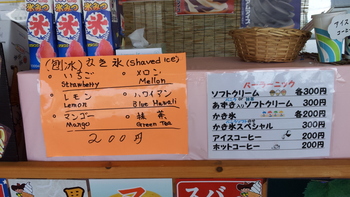 氷みつ 氷みつ 氷みつ
(包氷) かき氷 (shaved ice)
いちご メロン
Strawberry Mellon
レモン ハワイアン
Lemon Blue Hawaii
マンゴー 抹茶
Mango Green Tea
200円
ソフトクリーム 各300円
あずき入りソフトクリーム 300円
かき氷 各200円
かき氷スペシャル 300円
アイスコーヒー 200円
ホットコーヒー 200円
アイス
コーヒー